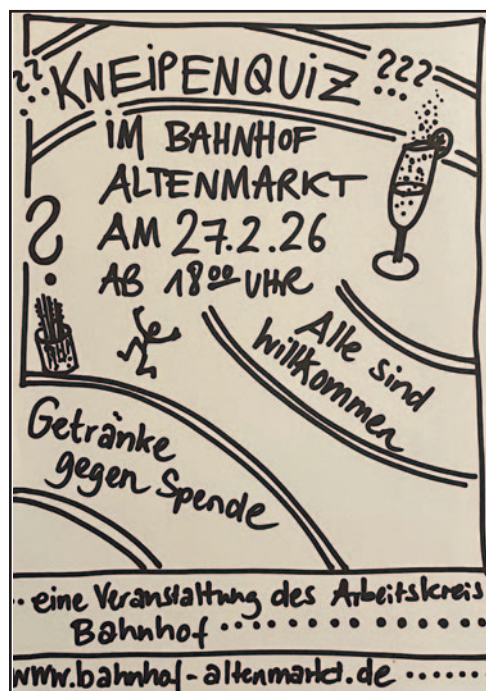 ?? KNEIPENQUIZ ???
IM BAHNHOF
ALTENMARKT
AM 27.2.26
AB 18⁰⁰ UHR
?
Alle sind
willkommen
Getränke
gegen Spende
.. eine Veranstaltung des Arbeitskreis
Bahnhof ............
www.bahnhof-altenmarkt.de ......